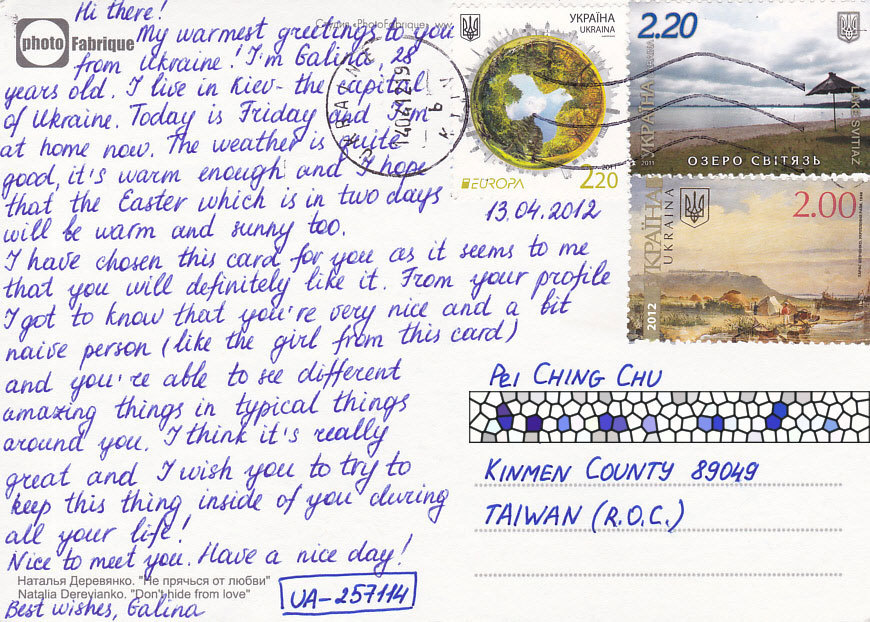 Hi there!
My warmest greetings to you
from Ukraine! I'm Galina, 28
years old. I live in Kiev - the capital
of Ukraine. Today is Friday and I'm
at home now. The weather is quite
good, it's warm enough and I hope
that the Easter which is in two days
will be warm and sunny too.
I have chosen this card for you as it seems to me
that you will definitely like it. From your profile
I got to know that you're very nice and a bit
naive person (like the girl from this card)
and you're able to see different
amazing things in typical things
around you. I think it's really
great and I wish you to try to
keep this thing inside of you during
all your life!
Nice to meet you. Have a nice day!
Best wishes, Galina
UA-257114
13.04.2012
photo Fabrique
Студия «PhotoFabrique» www
Наталья Деревянко. "Не прячься от любви"
Natalia Derevianko. "Don't hide from love"
УКРАЇНА
UKRAINA
EUROPA
2011
2.20
2.20
УКРАЇНА
UKRAINA
LAKE SVITIAZ
2011
ОЗЕРО СВІТЯЗЬ
2.00
УКРАЇНА
UKRAINA
2012
140412 19
PEI CHING CHU
KINMEN COUNTY 89049
TAIWAN (R.O.C.)